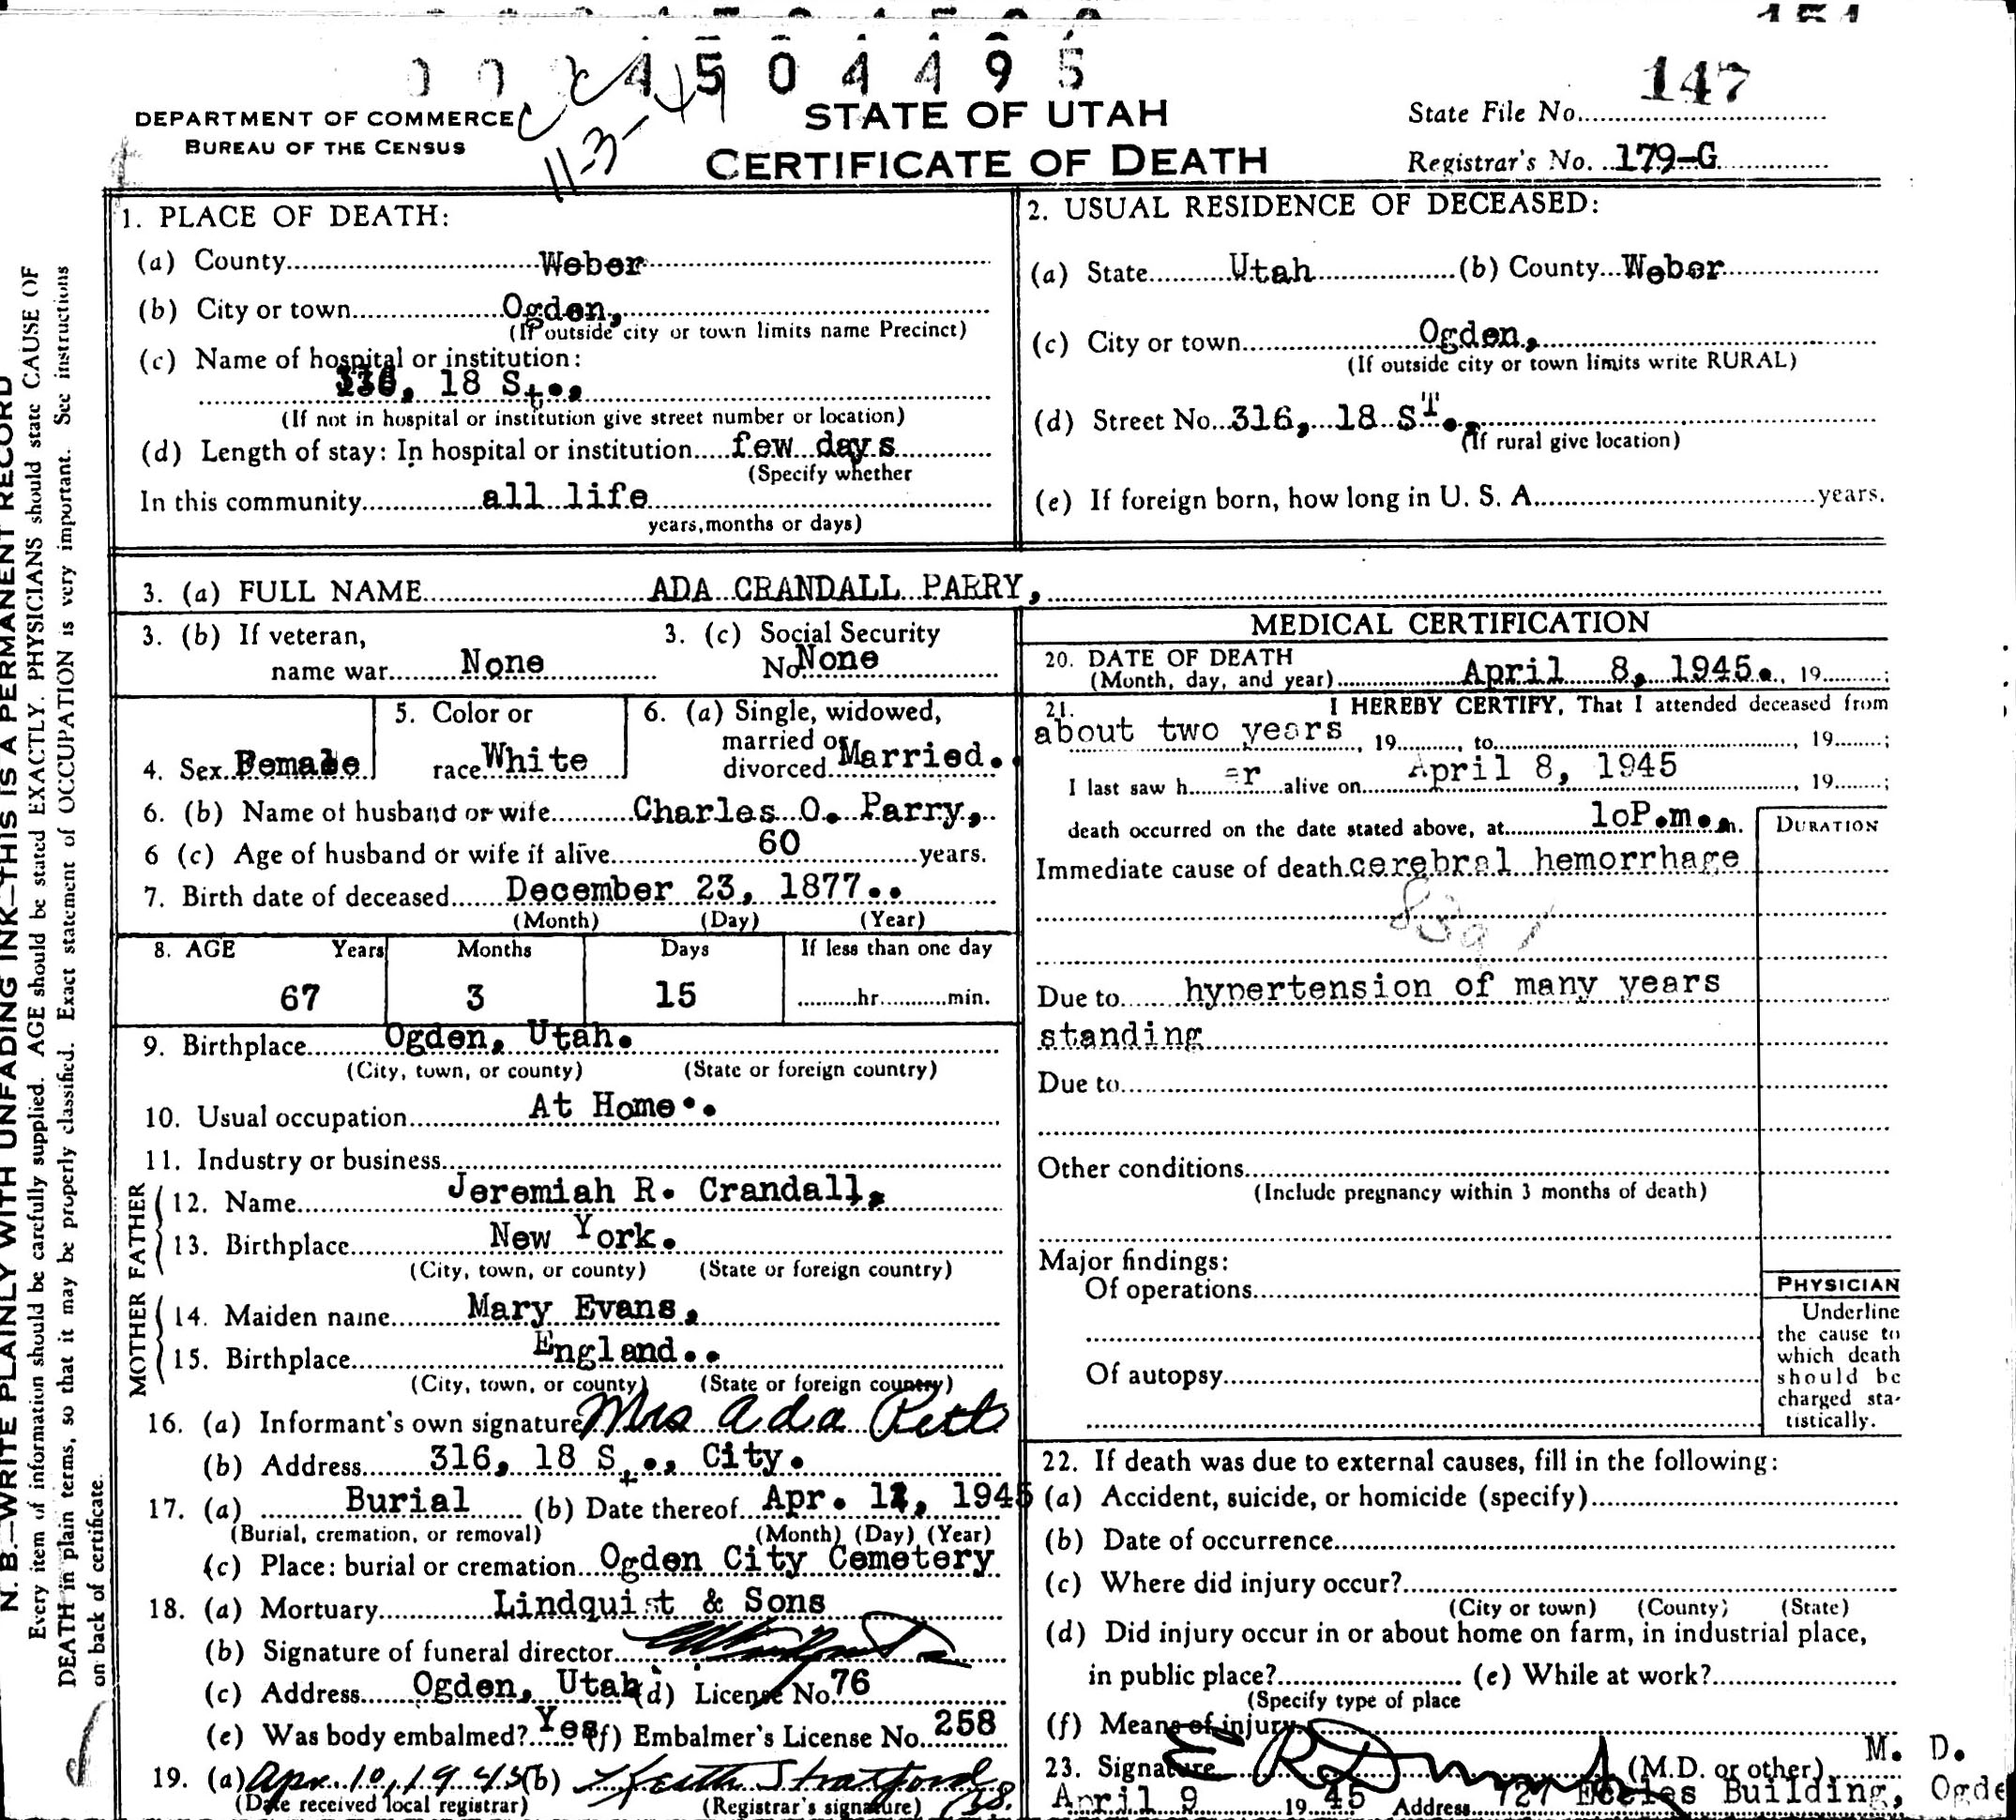 4 5 0 4 4 9 5
147
DEPARTMENT OF COMMERCE
BUREAU OF THE CENSUS
11-3-41
STATE OF UTAH
CERTIFICATE OF DEATH
State File No.
Registrar's No. 179-G
N. B.—WRITE PLAINLY WITH UNFADING INK—THIS IS A PERMANENT RECORD
Every item of information should be carefully supplied. AGE should be stated EXACTLY. PHYSICIANS should state CAUSE OF
DEATH in plain terms, so that it may be properly classified. Exact statement of OCCUPATION is very important. See instructions
on back of certificate.
1. PLACE OF DEATH:
(a) County Weber
(b) City or town Ogden,
(If outside city or town limits name Precinct)
(c) Name of hospital or institution:
18 St.,
(If not in hospital or institution give street number or location)
(d) Length of stay: In hospital or institution few days
(Specify whether
In this community all life
years, months or days)
2. USUAL RESIDENCE OF DECEASED:
(a) State Utah (b) County Weber
(c) City or town Ogden,
(If outside city or town limits write RURAL)
(d) Street No. 316, 18 ST.,
(If rural give location)
(e) If foreign born, how long in U. S. A. years.
3. (a) FULL NAME ADA CRANDALL PARRY,
3. (b) If veteran,
name war None
3. (c) Social Security
No. None
4. Sex Female
5. Color or
race White
6. (a) Single, widowed,
married or
divorced Married.
6. (b) Name of husband or wife Charles O. Parry,
6 (c) Age of husband or wife if alive 60 years.
7. Birth date of deceased December 23, 1877..
(Month) (Day) (Year)
8. AGE Years Months Days If less than one day
67 3 15 hr. min.
9. Birthplace Ogden, Utah.
(City, town, or county) (State or foreign country)
10. Usual occupation At Home..
11. Industry or business
FATHER
12. Name Jeremiah R. Crandall,
13. Birthplace New York.
(City, town, or county) (State or foreign country)
MOTHER
14. Maiden name Mary Evans,
15. Birthplace England..
(City, town, or county) (State or foreign country)
16. (a) Informant's own signature Mrs Ada
(b) Address 316, 18 St., City.
17. (a) Burial (b) Date thereof Apr. , 1945
(Burial, cremation, or removal) (Month) (Day) (Year)
(c) Place: burial or cremation Ogden City Cemetery
18. (a) Mortuary Lindquist & Sons
(b) Signature of funeral director
(c) Address Ogden, Utah (d) License No. 76
(e) Was body embalmed? Yes (f) Embalmer's License No. 258
19. (a) Apr. 10, 1945 (b) Keith Stratford
(Date received local registrar) (Registrar's signature)
MEDICAL CERTIFICATION
20. DATE OF DEATH
(Month, day, and year) April 8, 1945., 19 ;
21. I HEREBY CERTIFY, That I attended deceased from
about two years , 19 , to , 19 ;
I last saw her alive on April 8, 1945 , 19 ;
death occurred on the date stated above, at 1oP.m.m.
DURATION
Immediate cause of death cerebral hemorrhage
Due to hypertension of many years
standing
Due to
Other conditions
(Include pregnancy within 3 months of death)
Major findings:
Of operations
Of autopsy
PHYSICIAN
Underline
the cause to
which death
should be
charged sta-
tistically.
22. If death was due to external causes, fill in the following:
(a) Accident, suicide, or homicide (specify)
(b) Date of occurrence
(c) Where did injury occur?
(City or town) (County) (State)
(d) Did injury occur in or about home on farm, in industrial place,
in public place? (e) While at work?
(Specify type of place
(f) Means of injury
23. Signature (M.D. or other) M. D.
April 9 19 45 Address 727 Eccles Building, Ogde